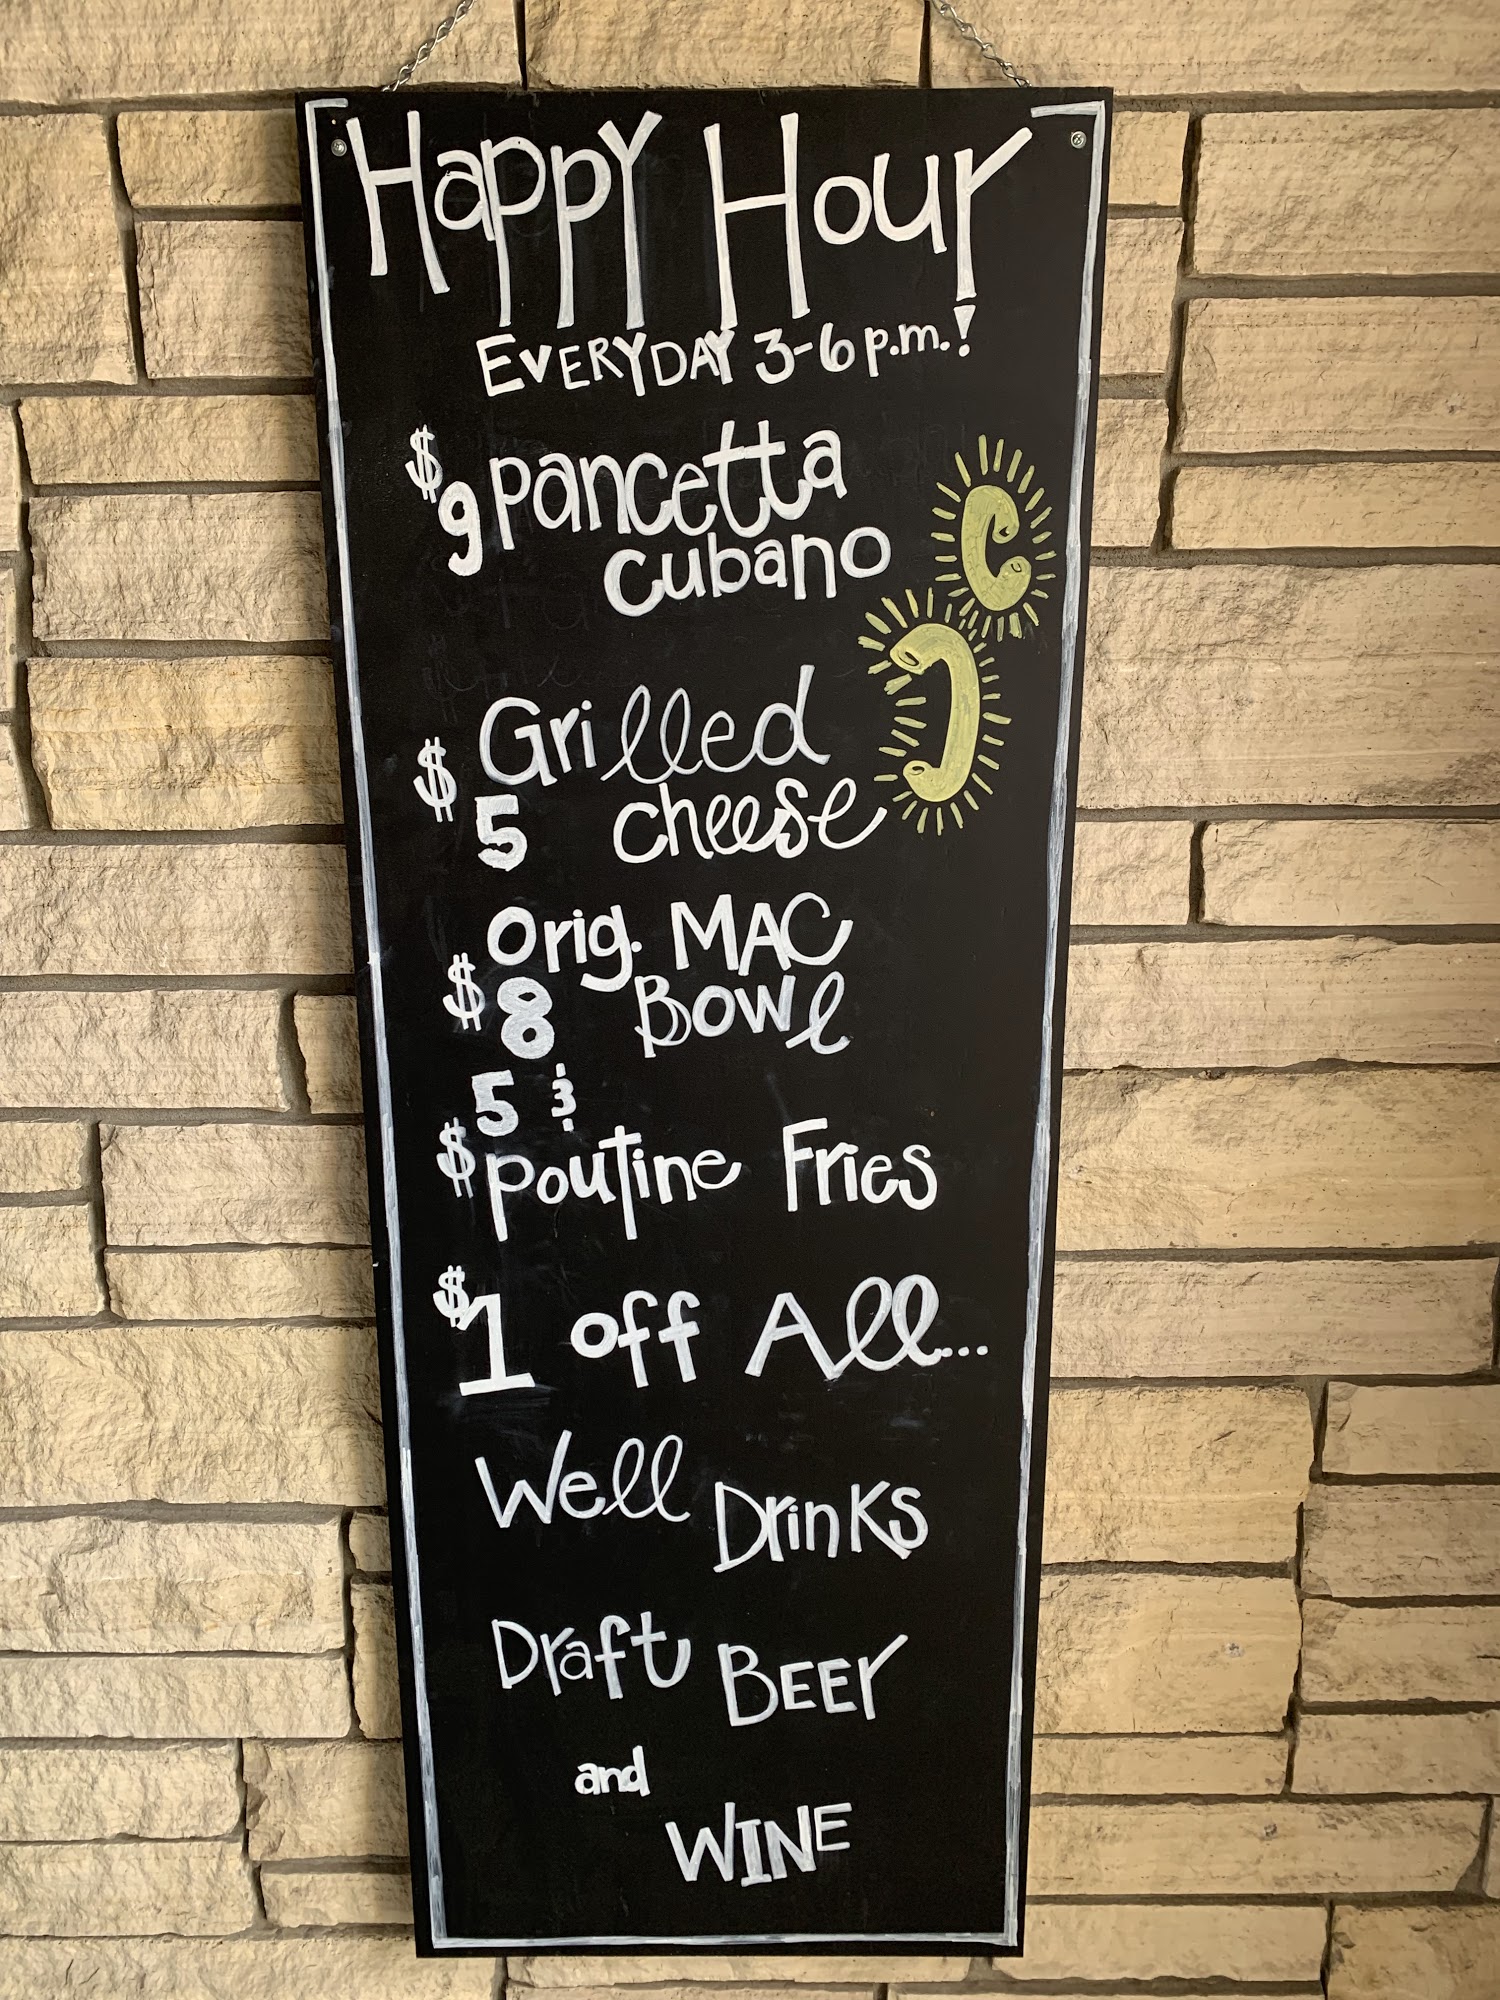 Happy Hour
EVERYDAY 3-6 p.m.!
$9 pancetta
cubano
Grilled
$5 cheese
Orig. MAC
$8 Bowl
5 &
$ poutine Fries
$1 off All...
Well Drinks
Draft BEER
and
WINE